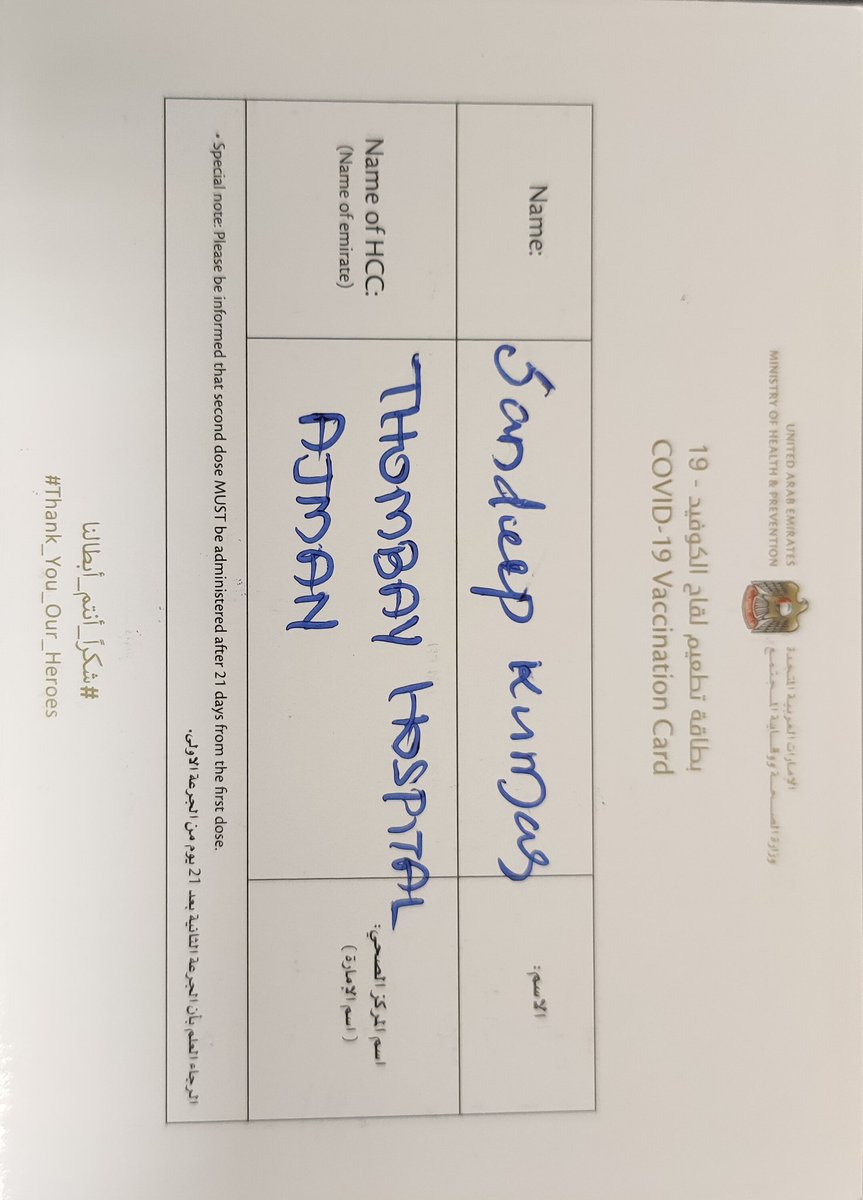 UNITED ARAB EMIRATES
MINISTRY OF HEALTH & PREVENTION
الإمارات العربية المتحدة
وزارة الصحة ووقاية المجتمع
بطاقة تطعيم لقاح الكوفيد - 19
COVID-19 Vaccination Card
Name:
Sandeep Kumar
الاسم:
Name of HCC:
(Name of emirate)
THOMBAY HOSPITAL
AJMAN
اسم المركز الصحي:
(اسم الإمارة)
• Special note: Please be informed that second dose MUST be administered after 21 days from the first dose.
الرجاء العلم بأن الجرعة الثانية بعد 21 يوم من الجرعة الاولى.
#شكراً_أنتم_أبطالنا
#Thank_You_Our_Heroes